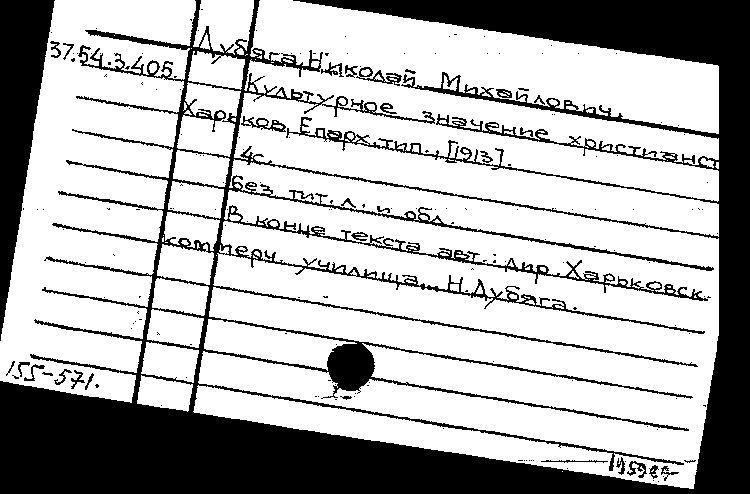 Дубяга, Николай Михайлович.
37.54.3.405.
Культурное значение христианст
Харьков, Епарх. тип., [1913].
4с.
Без тит. л. и обл.
В конце текста авт.: дир. Харьковск.
коммерч. училища... Н. Дубяга.
155-571.